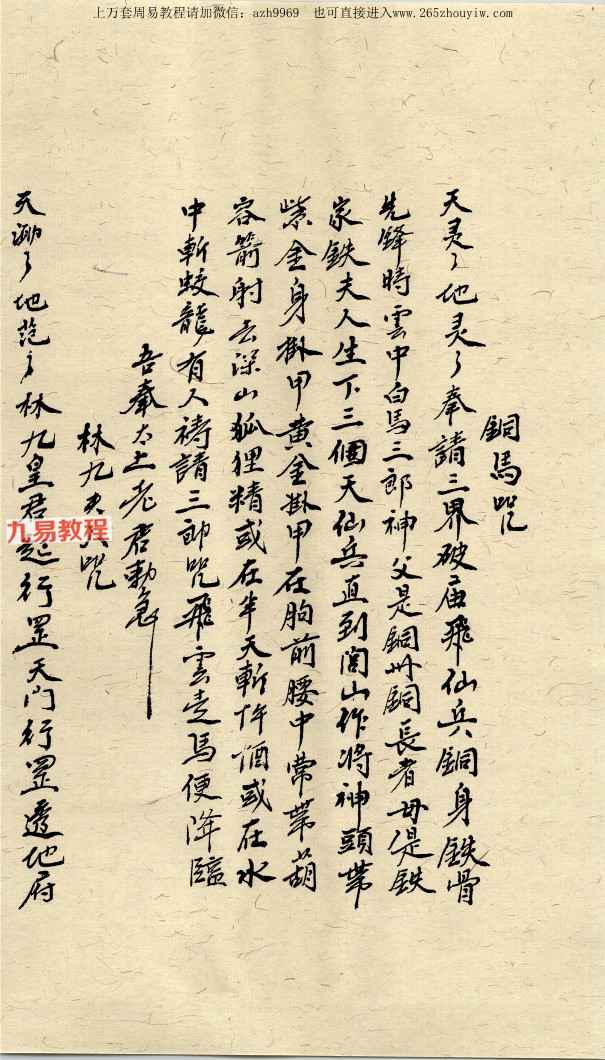 上万套周易教程请加微信：azh9969　也可直接进入www.265zhouyiw.com
銅馬咒
天灵々地灵々奉請三界破庙飛仙兵銅身鉄骨
先鋒時雲中白馬三郎神父是銅州銅長者母是鉄
家鉄夫人生下三個天仙兵直到闾山作将神頭带
紫金身掛甲黄金掛甲在胸前腰中常带葫
容箭射去深山狐狸精或在半天斬 或在水
中斬蛟龍有人祷請三郎咒飛雲走馬便降臨
吾奉太上老君勅急
林九夫 咒
天 々地 々林九皇君起行罡天门行罡透地府
九易教程